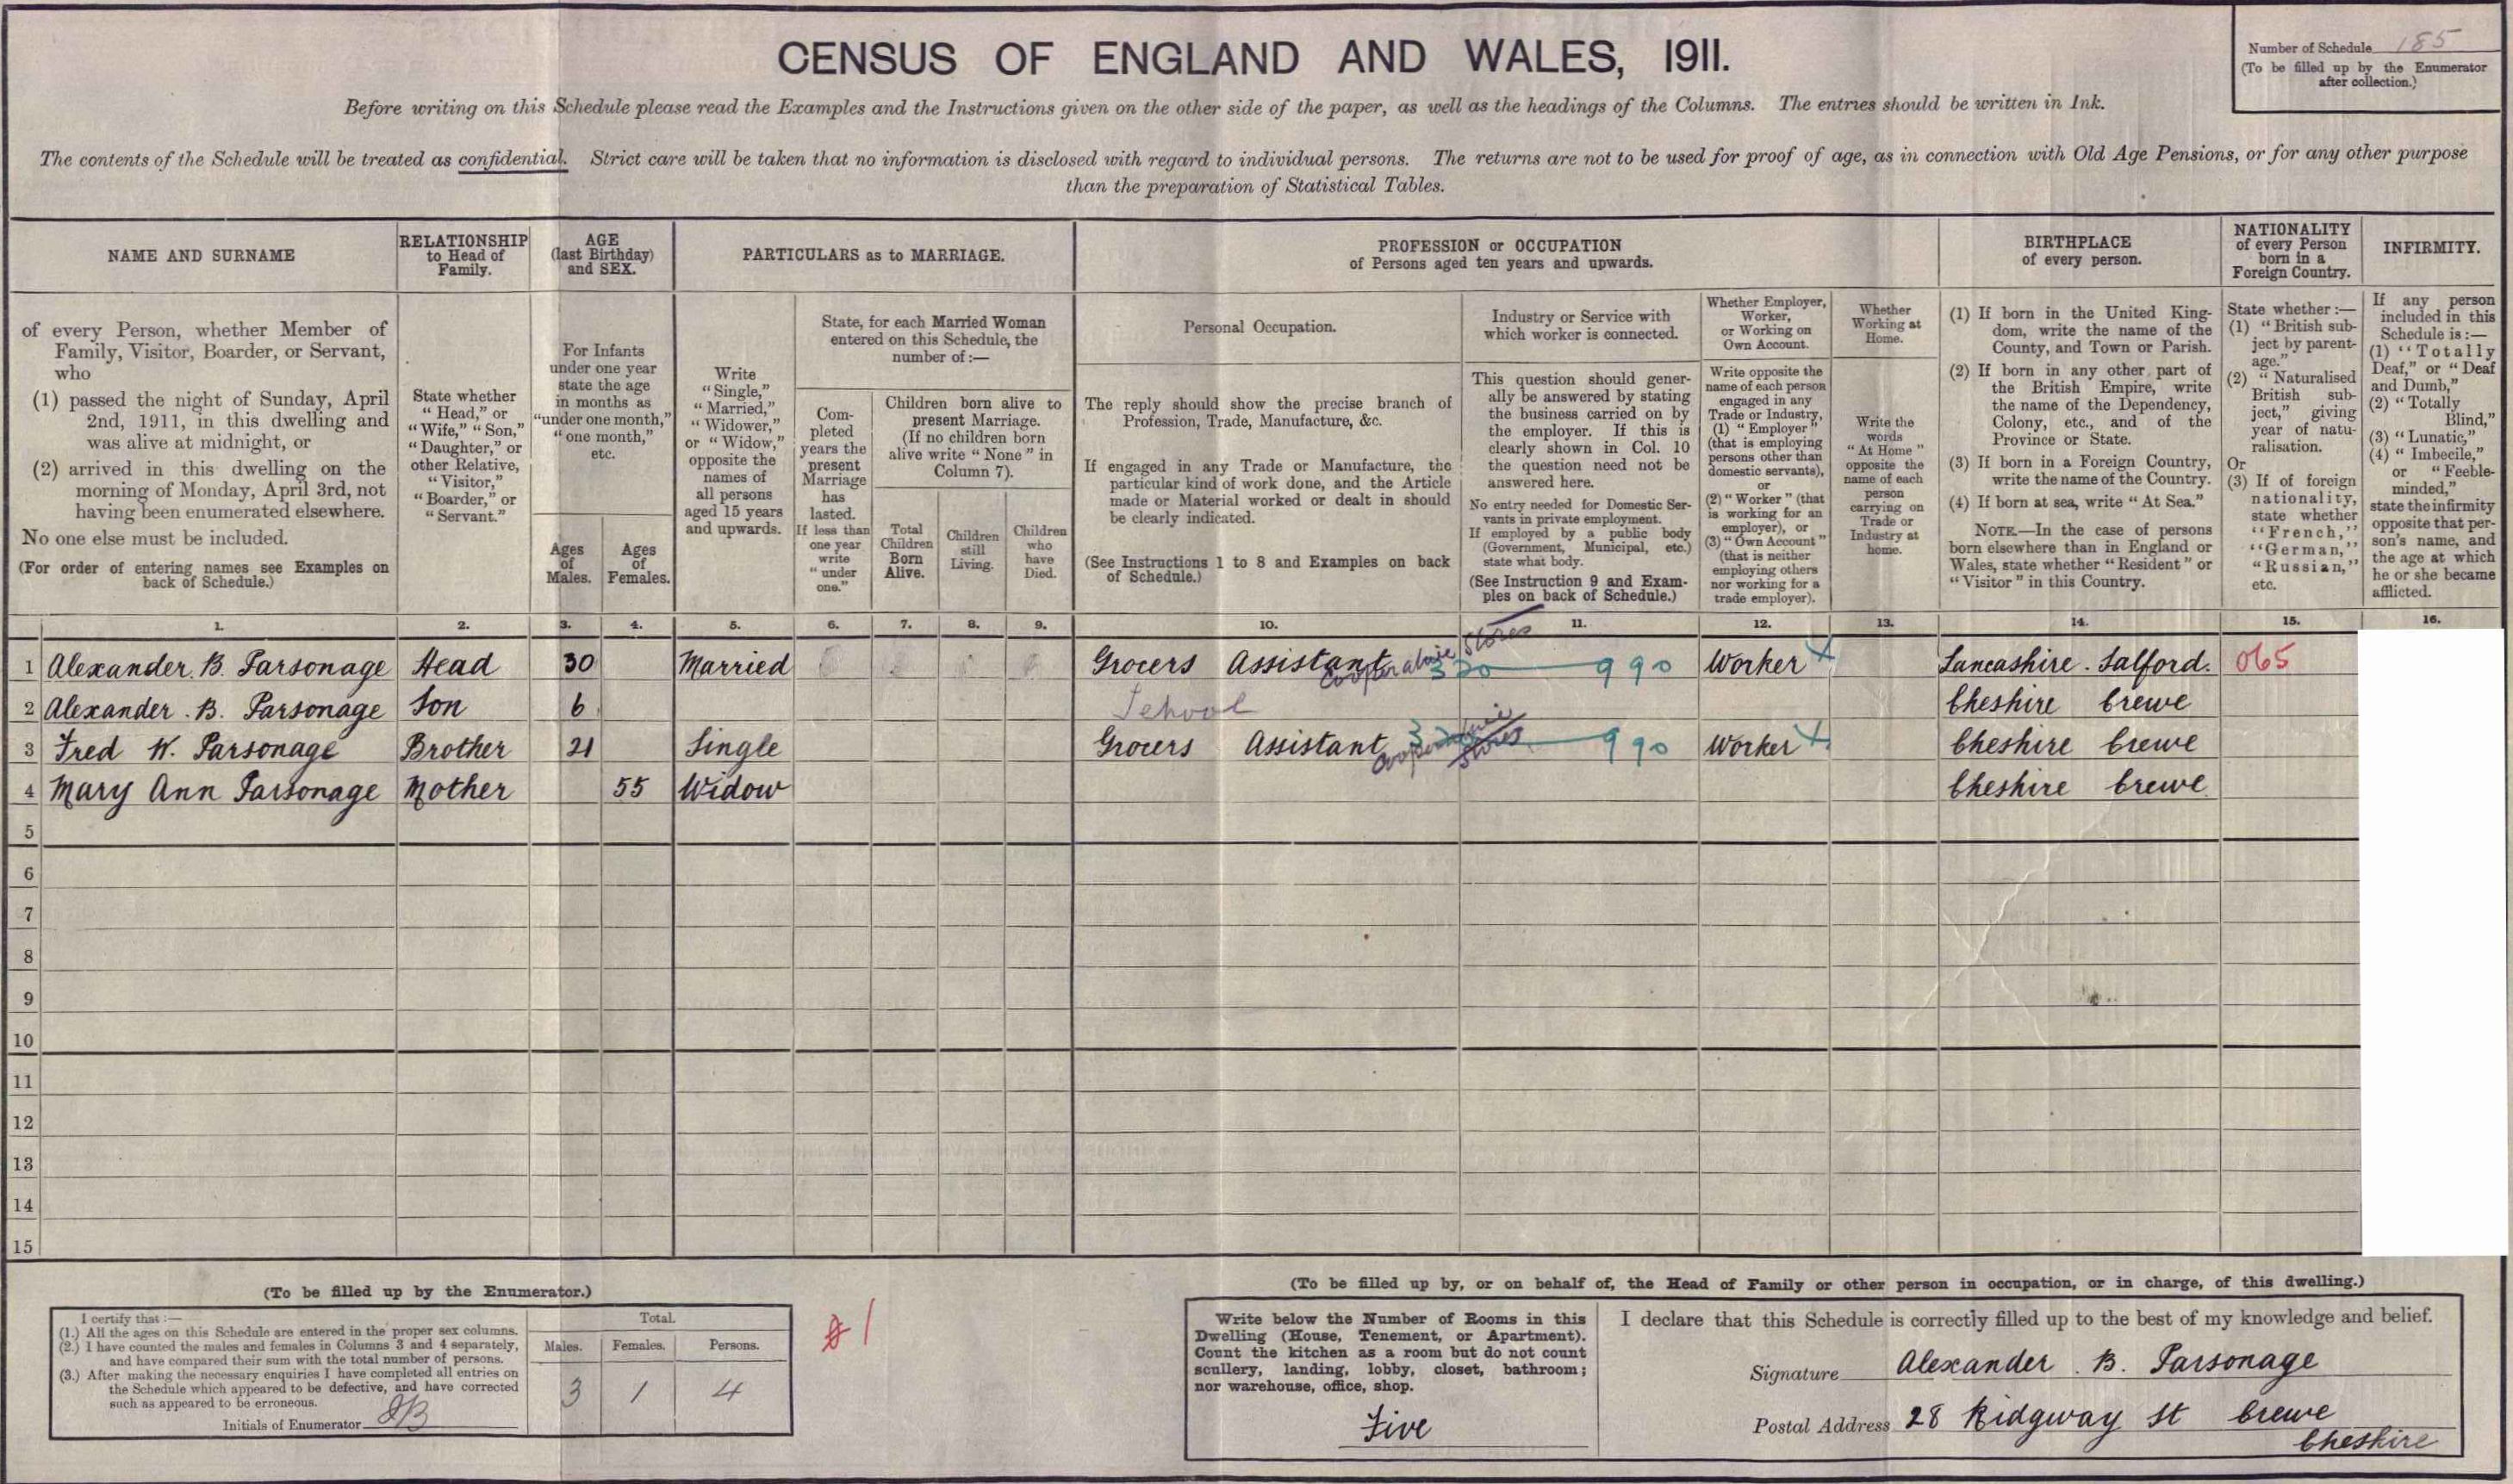 CENSUS OF ENGLAND AND WALES, 1911.
Number of Schedule 185
(To be filled up by the Enumerator
after collection.)
Before writing on this Schedule please read the Examples and the Instructions given on the other side of the paper, as well as the headings of the Columns. The entries should be written in Ink.
The contents of the Schedule will be treated as confidential. Strict care will be taken that no information is disclosed with regard to individual persons. The returns are not to be used for proof of age, as in connection with Old Age Pensions, or for any other purpose
than the preparation of Statistical Tables.
NAME AND SURNAME
of every Person, whether Member of
Family, Visitor, Boarder, or Servant,
who
(1) passed the night of Sunday, April
2nd, 1911, in this dwelling and
was alive at midnight, or
(2) arrived in this dwelling on the
morning of Monday, April 3rd, not
having been enumerated elsewhere.
No one else must be included.
(For order of entering names see Examples on
back of Schedule.)
RELATIONSHIP
to Head of
Family.
State whether
"Head," or
"Wife," "Son,"
"Daughter," or
other Relative,
"Visitor,"
"Boarder," or
"Servant."
AGE
(last Birthday)
and SEX.
For Infants
under one year
state the age
in months as
"under one month,"
"one month,"
etc.
Ages
of
Males.
Ages
of
Females.
PARTICULARS as to MARRIAGE.
Write
"Single,"
"Married,"
"Widower,"
or "Widow,"
opposite the
names of
all persons
aged 15 years
and upwards.
State, for each Married Woman
entered on this Schedule, the
number of:—
Com-
pleted
years the
present
Marriage
has
lasted.
If less than
one year
write
"under
one."
Children born alive to
present Marriage.
(If no children born
alive write "None" in
Column 7).
Total
Children
Born
Alive.
Children
still
Living.
Children
who
have
Died.
PROFESSION or OCCUPATION
of Persons aged ten years and upwards.
Personal Occupation.
The reply should show the precise branch of
Profession, Trade, Manufacture, &c.
If engaged in any Trade or Manufacture, the
particular kind of work done, and the Article
made or Material worked or dealt in should
be clearly indicated.
(See Instructions 1 to 8 and Examples on back
of Schedule.)
Industry or Service with
which worker is connected.
This question should gener-
ally be answered by stating
the business carried on by
the employer. If this is
clearly shown in Col. 10
the question need not be
answered here.
No entry needed for Domestic Ser-
vants in private employment.
If employed by a public body
(Government, Municipal, etc.)
state what body.
(See Instruction 9 and Exam-
ples on back of Schedule.)
Whether Employer,
Worker,
or Working on
Own Account.
Write opposite the
name of each person
engaged in any
Trade or Industry,
(1) "Employer"
(that is employing
persons other than
domestic servants),
or
(2) "Worker" (that
is working for an
employer), or
(3) "Own Account"
(that is neither
employing others
nor working for a
trade employer).
Whether
Working at
Home.
Write the
words
"At Home"
opposite the
name of each
person
carrying on
Trade or
Industry at
home.
BIRTHPLACE
of every person.
(1) If born in the United King-
dom, write the name of the
County, and Town or Parish.
(2) If born in any other part of
the British Empire, write
the name of the Dependency,
Colony, etc., and of the
Province or State.
(3) If born in a Foreign Country,
write the name of the Country.
(4) If born at sea, write "At Sea."
NOTE.—In the case of persons
born elsewhere than in England or
Wales, state whether "Resident" or
"Visitor" in this Country.
NATIONALITY
of every Person
born in a
Foreign Country.
State whether:—
(1) "British sub-
ject by parent-
age."
(2) "Naturalised
British sub-
ject," giving
year of natu-
ralisation.
Or
(3) If of foreign
nationality,
state whether
"French,"
"German,"
"Russian,"
etc.
INFIRMITY.
If any person
included in this
Schedule is:—
(1) "Totally
Deaf," or "Deaf
and Dumb,"
(2) "Totally
Blind,"
(3) "Lunatic,"
(4) "Imbecile,"
or "Feeble-
minded,"
state the infirmity
opposite that per-
son's name, and
the age at which
he or she became
afflicted.
1. 2. 3. 4. 5. 6. 7. 8. 9. 10. 11. 12. 13. 14. 15. 16.
Cooperative Stores
1 Alexander. B. Parsonage Head 30 Married Grocers Assistant 320 990 Worker Lancashire. Salford. 065
2 Alexander. B. Parsonage Son 6 School Cheshire Crewe
3 Fred W. Parsonage Brother 21 Single Grocers Assistant 990 Worker Cheshire Crewe
Cooperative Stores
4 Mary Ann Parsonage Mother 55 Widow Cheshire Crewe
5
6
7
8
9
10
11
12
13
14
15
(To be filled up by the Enumerator.)
I certify that:—
(1.) All the ages on this Schedule are entered in the proper sex columns.
(2.) I have counted the males and females in Columns 3 and 4 separately,
and have compared their sum with the total number of persons.
(3.) After making the necessary enquiries I have completed all entries on
the Schedule which appeared to be defective, and have corrected
such as appeared to be erroneous.
Initials of Enumerator
Total.
Males. Females. Persons.
3 1 4
1
(To be filled up by, or on behalf of, the Head of Family or other person in occupation, or in charge, of this dwelling.)
Write below the Number of Rooms in this
Dwelling (House, Tenement, or Apartment).
Count the kitchen as a room but do not count
scullery, landing, lobby, closet, bathroom;
nor warehouse, office, shop.
Five
I declare that this Schedule is correctly filled up to the best of my knowledge and belief.
Signature Alexander. B. Parsonage
Postal Address 28 Ridgway St Crewe
Cheshire